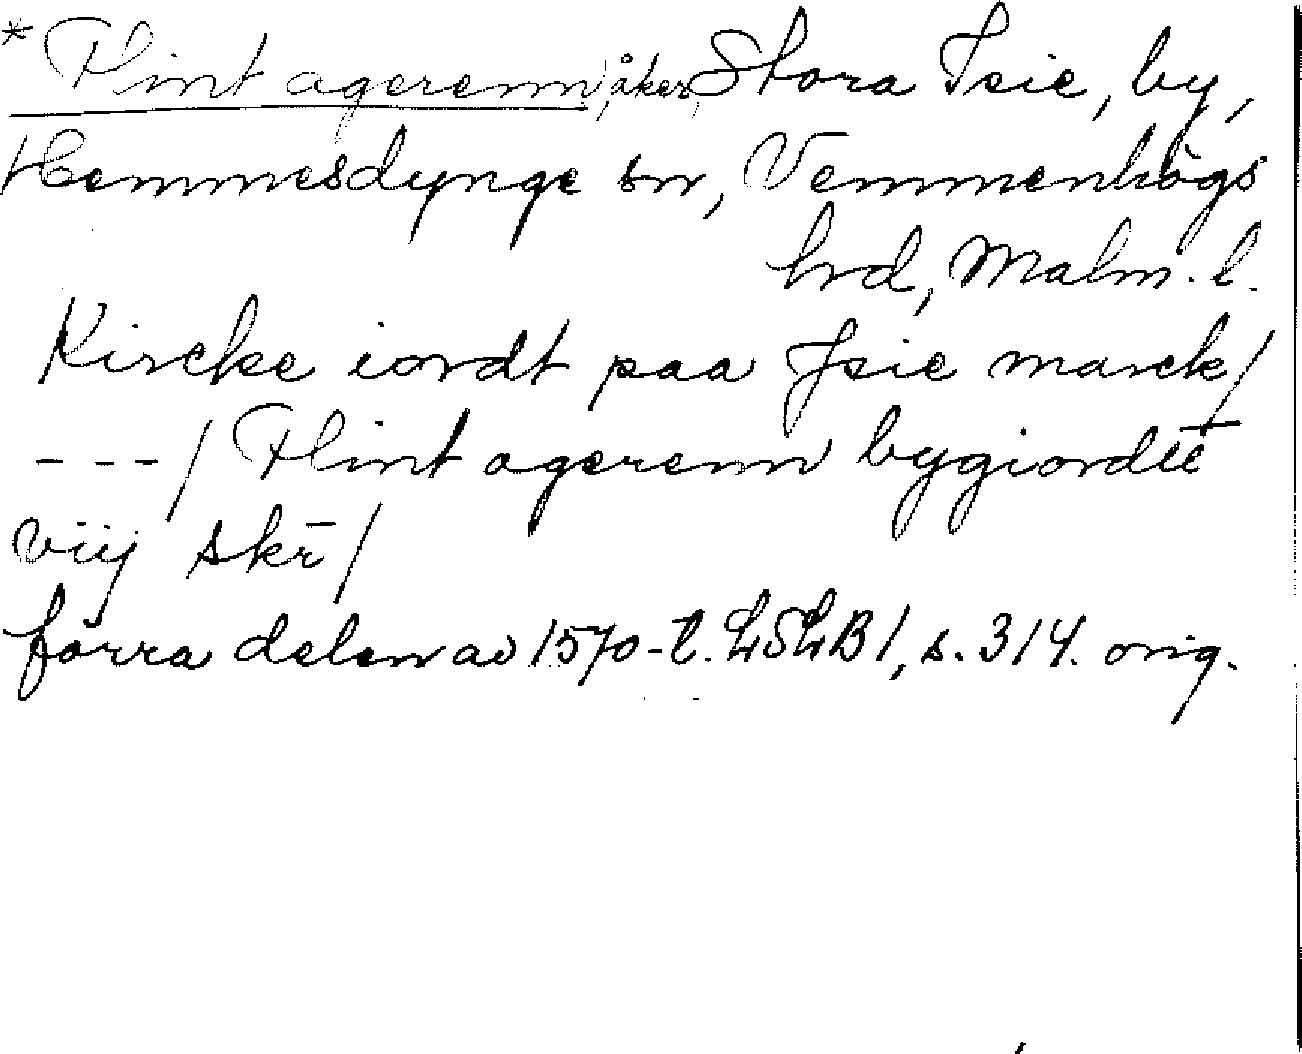 * Flint agerenn, åker, Stora Isie, by,
Hemmesdynge sn, Vemmenhögs
hrd, Malm. l.
Kircke iordt paa Jsie marck/
---/ Flint agerenn bygiordtt
viij skr̄/
förra delen av 1570-t. LSLB 1, s. 314. orig.